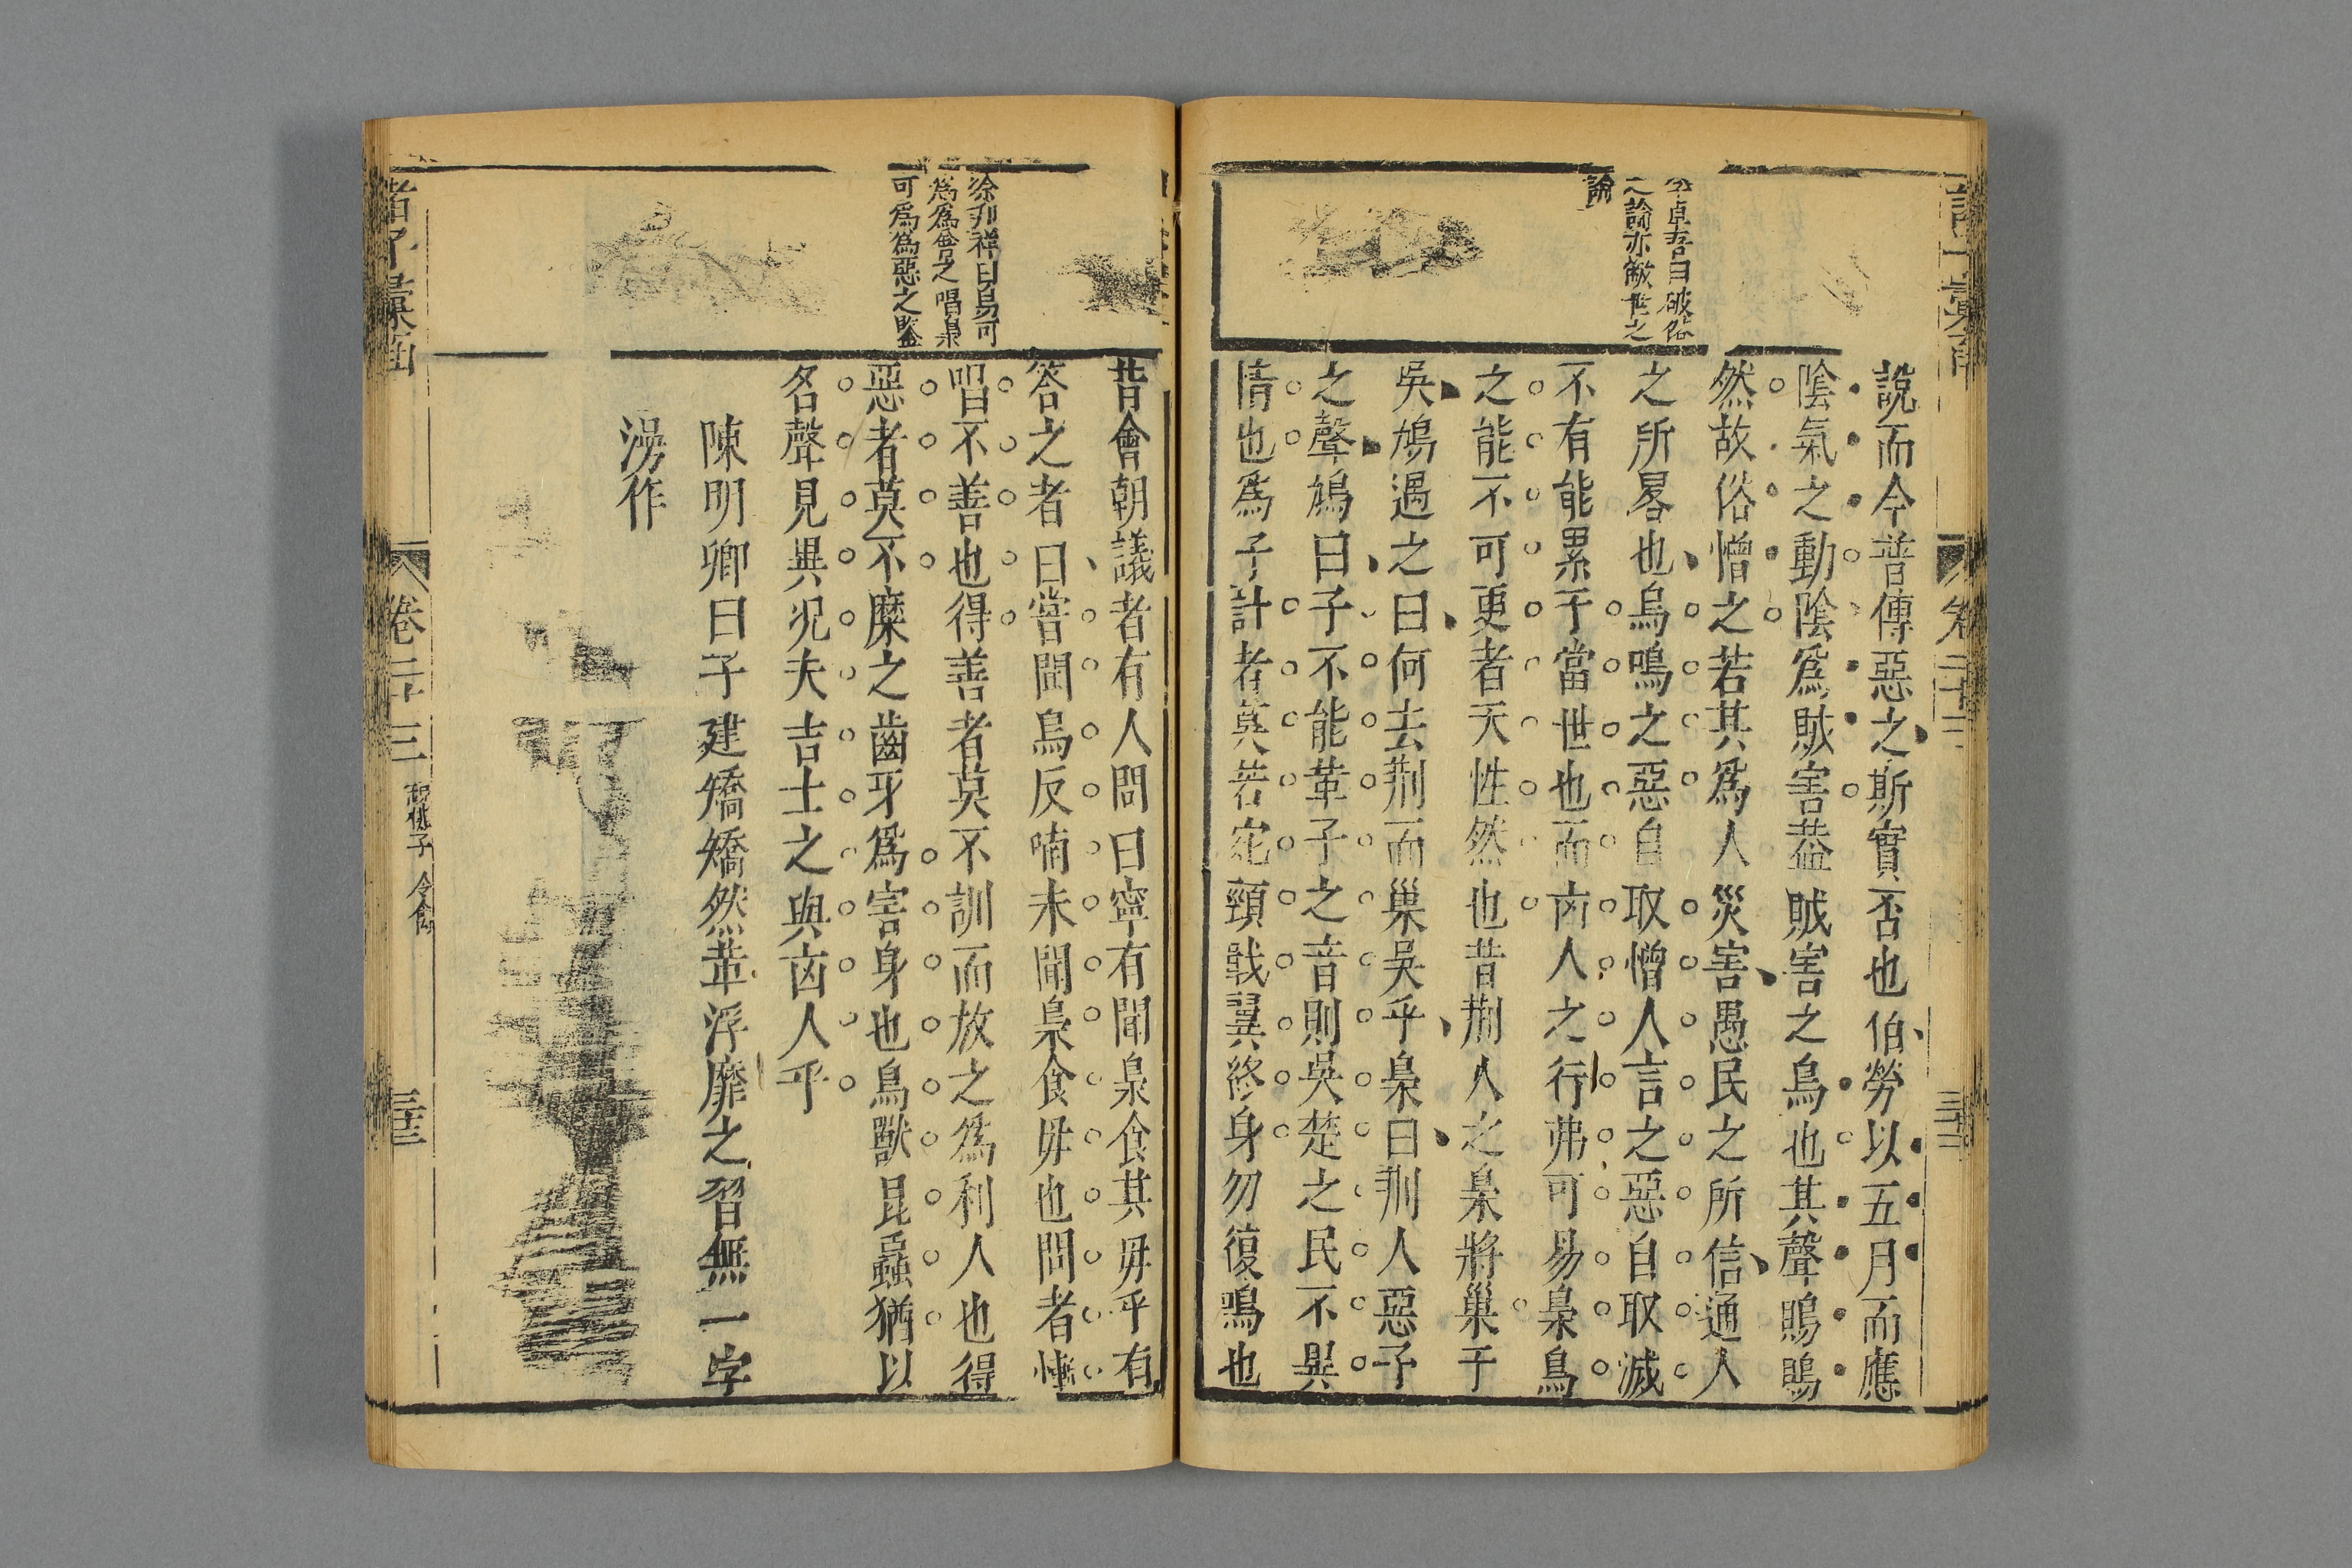 李卓吾曰破俗
之論亦敵世之
論
說而今普傳惡之斯實否也伯勞以五月而應
陰氣之動陰爲賊害葢賊害之鳥也其聲鵙鵙
然故俗憎之若其爲人災害愚民之所信通人
之所畧也鳥鳴之惡自取憎人言之惡自取滅
不有能累于當世也而㐫人之行弗可易梟鳥
之能不可更者天性然也昔荆人之梟將巢于
吳鳩遇之曰何去荆而巢吳乎梟曰荆人惡予
之聲鳩曰子不能革子之音則吳楚之民不異
情也爲子計者莫若宛頸戢翼終身勿復鳴也
徐邦祥曰易可
爲爲會之唱梟
可爲爲惡之鑒
昔會朝議者有人問曰寧有聞梟食其毋乎有
答之者曰嘗聞烏反哺未聞梟食毋也問者慚
唱不善也得善者莫不訓而放之爲利人也得
惡者莫不糜之齒牙爲害身也鳥獸昆蟲猶以
名聲見異况夫吉士之與㐫人乎
陳明卿曰子建矯矯然葷浮靡之習無一字
澇作
諸子彙函
卷二十三
令禽
三十三